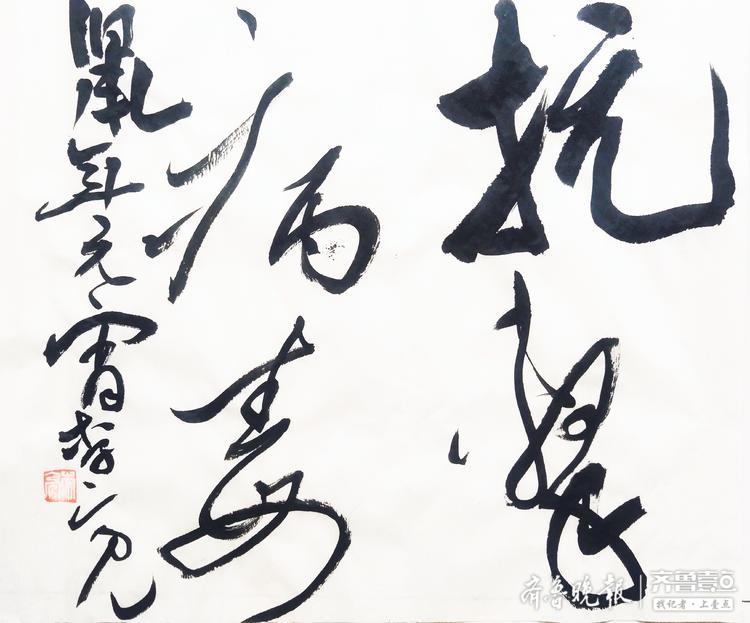 抗擊
病毒
鼠年元宵
齐鲁晚报
齐鲁壹点
找记者·上壹点